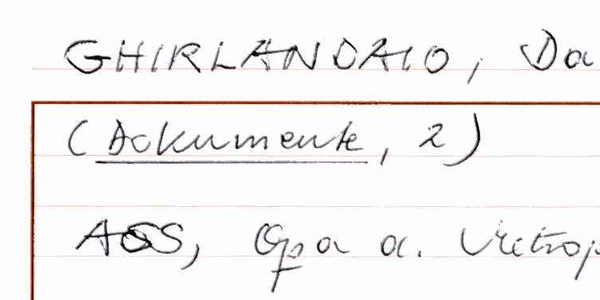 GHIRLANDAIO, Da
(Dokumente, 2)
AOS, Opa a. Metrop